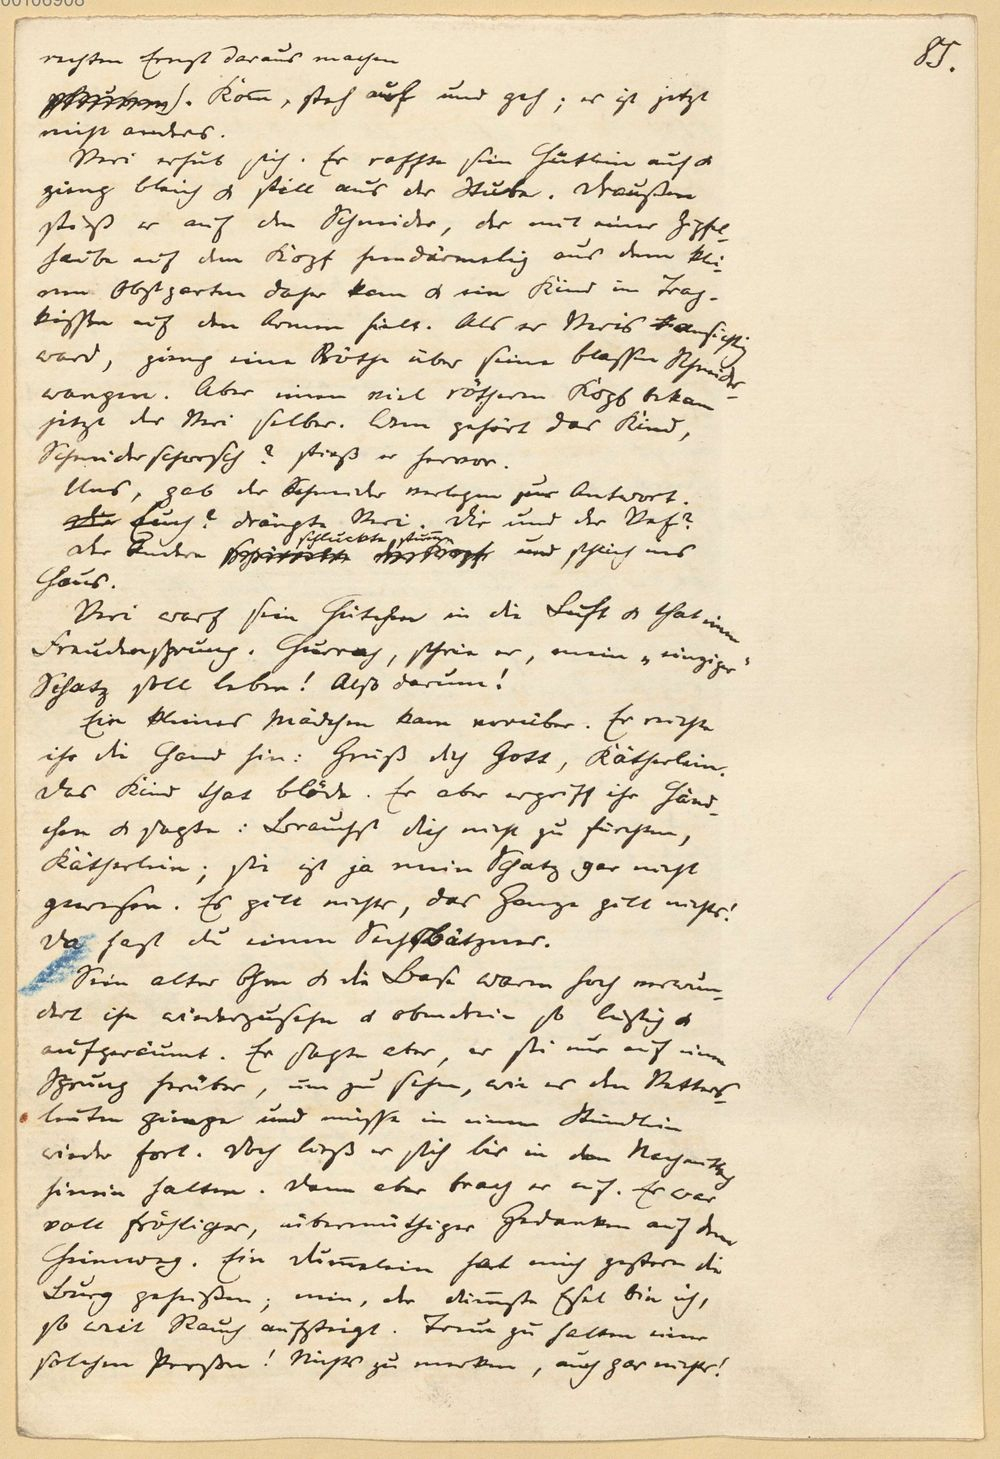 85.
rechten Ernst daraus machen
Kom̅, steh auf und geh; es ist jetzt
nicht anders.
Veri erhub sich. Er raffte sein Hütlein auf &
gieng bleich & still aus der Stube. Draußen
stieß er auf den Schneider, der mit einer Zipfel-
haube auf dem Kopf hemdärmelig aus dem klei-
nen Obstgarten daher kam & ein Kind im Trag-
kissen auf den Armen hielt. Als er Veris ansichtig
ward, gieng eine Röthe über seine blassen Schneider-
wangen. Aber einen viel röthern Kopf bekam
jetzt der Veri selber. Wem gehört das Kind,
Schneiderschorsch? stieß er hervor.
Uns, gab der Schneider verlegen zur Antwort.
Euch? drängte Veri. Dir und der Vef?
schluckte stum̅
Der Andere und schlich ins
Haus.
Veri warf sein Hütchen in die Luft & that einen
Freudensprung. Hurrah, schrie er, mein „einziger“
Schatz soll leben! Also darum!
Ein kleines Mädchen kam vorüber. Er reichte
ihr die Hand hin: Grüß dich Gott, Kätherlein.
Das Kind that blöde. Er aber ergriff ihr Händ-
chen & sagte: Brauchst dich nicht zu fürchten,
Kätherlein; sie ist ja mein Schatz gar nicht
gewesen. Es gilt nichts, das Ganze gilt nichts!
Da hast du einen Sechsbätzner.
Sein alter Ohm & die Base waren hoch verwun-
dert ihn wiederzusehn & obendrein so lustig &
aufgeräumt. Er sagte aber, er sei nur auf einen
Sprung herüber, um zu sehen, wie es den Vetters-
leuten gienge und müsse in einem Stündlein
wieder fort. Doch ließ er sich bis in den Nachmittag
hinein halten. Dann aber brach er auf. Er war
voll fröhliger, übermüthiger Gedanken auf dem
Heimweg. Ein Dum̅elein hat mich gestern die
Burg geheißen; nein, der düm̅ste Esel bin ich,
so weit Rauch aufsteigt. Treue zu halten einer
solchen Person! Nichts zu merken, auch gar nichts!